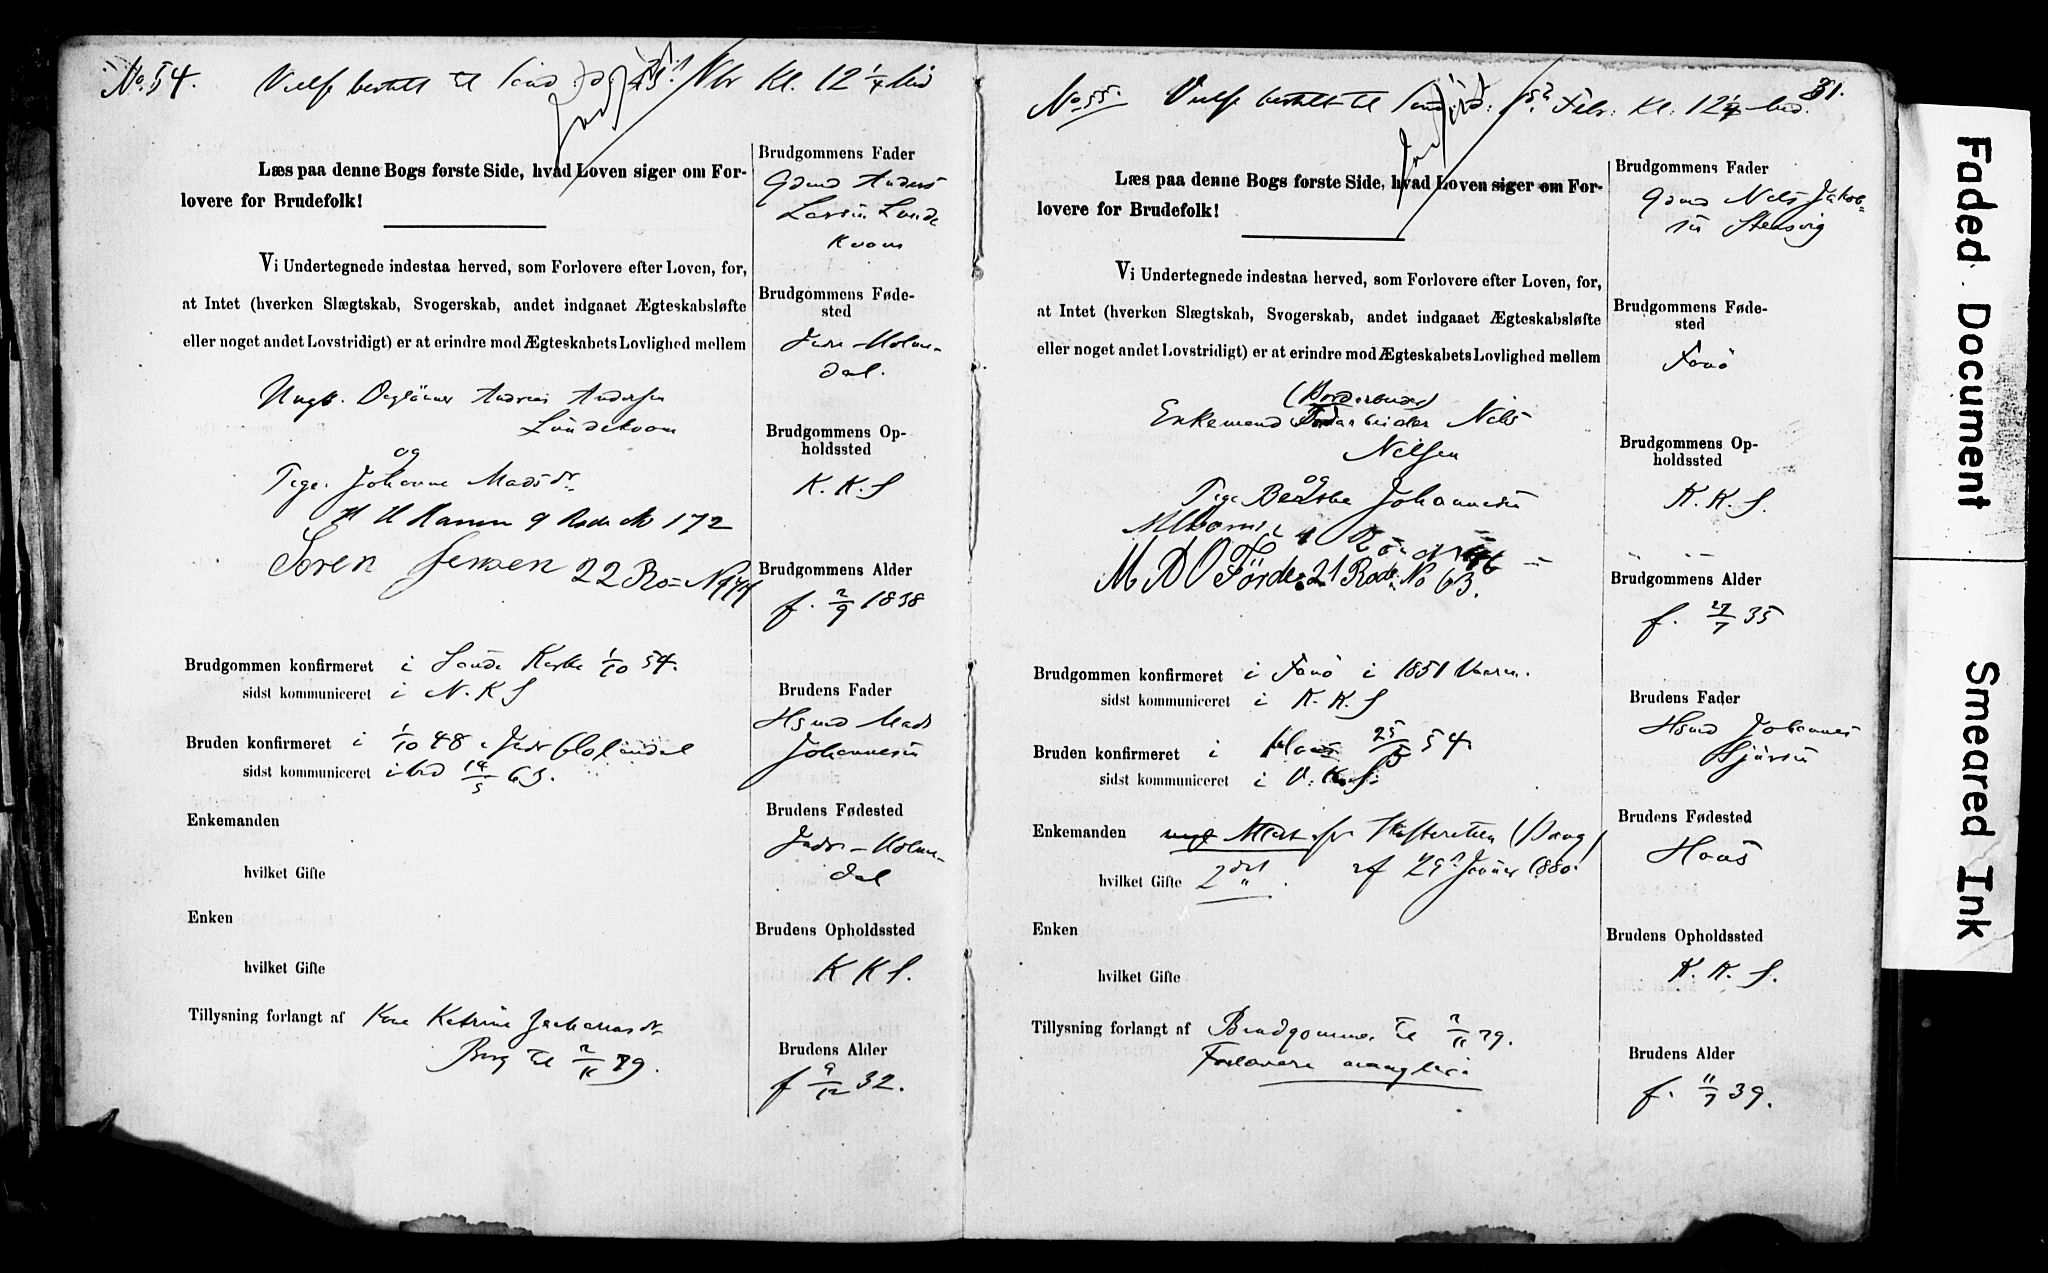 No. 54. Vielse bestilt til Kl. 12 1/4 Md
Læs paa denne Bogs første Side, hvad Loven siger om For-
lovere for Brudefolk!
Vi Undertegnede indestaa herved, som Forlovere efter Loven, for,
at Intet (hverken Slægtskab, Svogerskab, andet indgaaet Ægteskabsløfte
eller noget andet Lovstridigt) er at erindre mod Ægteskabets Lovlighed mellem
Ungk. Andreas Andersen
Lundekvam
og
Pige. Johanne Madsdr
9 Rode No 172
Soren Jensen 22 Ro
Brudgommen konfirmeret i Kirke 1/10 54.
sidst kommuniceret i N. K S
Bruden konfirmeret i 1/10 48 i
sidst kommuniceret ibid 14/5 63.
Enkemanden
hvilket Gifte
Enken
hvilket Gifte
Tillysning forlangt af Kone Katrine
Berg til 2/11 79.
Brudgommens Fader
Gdmd Anders
Larsen Lunde
kvam
Brudgommens Føde-
sted
Indr-Holm-
dal.
Brudgommens Op-
holdssted
K. K. S
Brudgommens Alder
f. 2/9 1838
Brudens Fader
Hsmd Mads
Johannesen
Brudens Fødested
Indr-Holm-
dal
Brudens Opholdssted
K K S.
Brudens Alder
f 9/12 32.
No 55. Vielse bestilt til Febr. Kl. 12 1/4 Md.
31.
Læs paa denne Bogs første Side, hvad Loven siger om For-
lovere for Brudefolk!
Vi Undertegnede indestaa herved, som Forlovere efter Loven, for,
at Intet (hverken Slægtskab, Svogerskab, andet indgaaet Ægteskabsløfte
eller noget andet Lovstridigt) er at erindre mod Ægteskabets Lovlighed mellem
Enkemand Nils
Nilsen
og
Pige Johannesen
M D O Förde 21 Rode No 63.
Brudgommen konfirmeret i Fanö i 1851 Vaaren.
sidst kommuniceret i K. K. S
Bruden konfirmeret i Haus 25/5 54
sidst kommuniceret i
Enkemanden Attest fr Skifteretten
hvilket Gifte 2det af 29 Januar 1880.
Enken
hvilket Gifte
Tillysning forlangt af Brudgommen til 2/11 79.
Forlovere mangler
Brudgommens Fader
Gdmd Nils Jakob-
sen Stensvig
Brudgommens Føde-
sted
Fanö
Brudgommens Op-
holdssted
K. K. S.
Brudgommens Alder
f. 27/7 35
Brudens Fader
Hsmd Johannes
Brudens Fødested
Haus
Brudens Opholdssted
K. K. S.
Brudens Alder
f. 11/7 39.
Faded Document
Smeared Ink